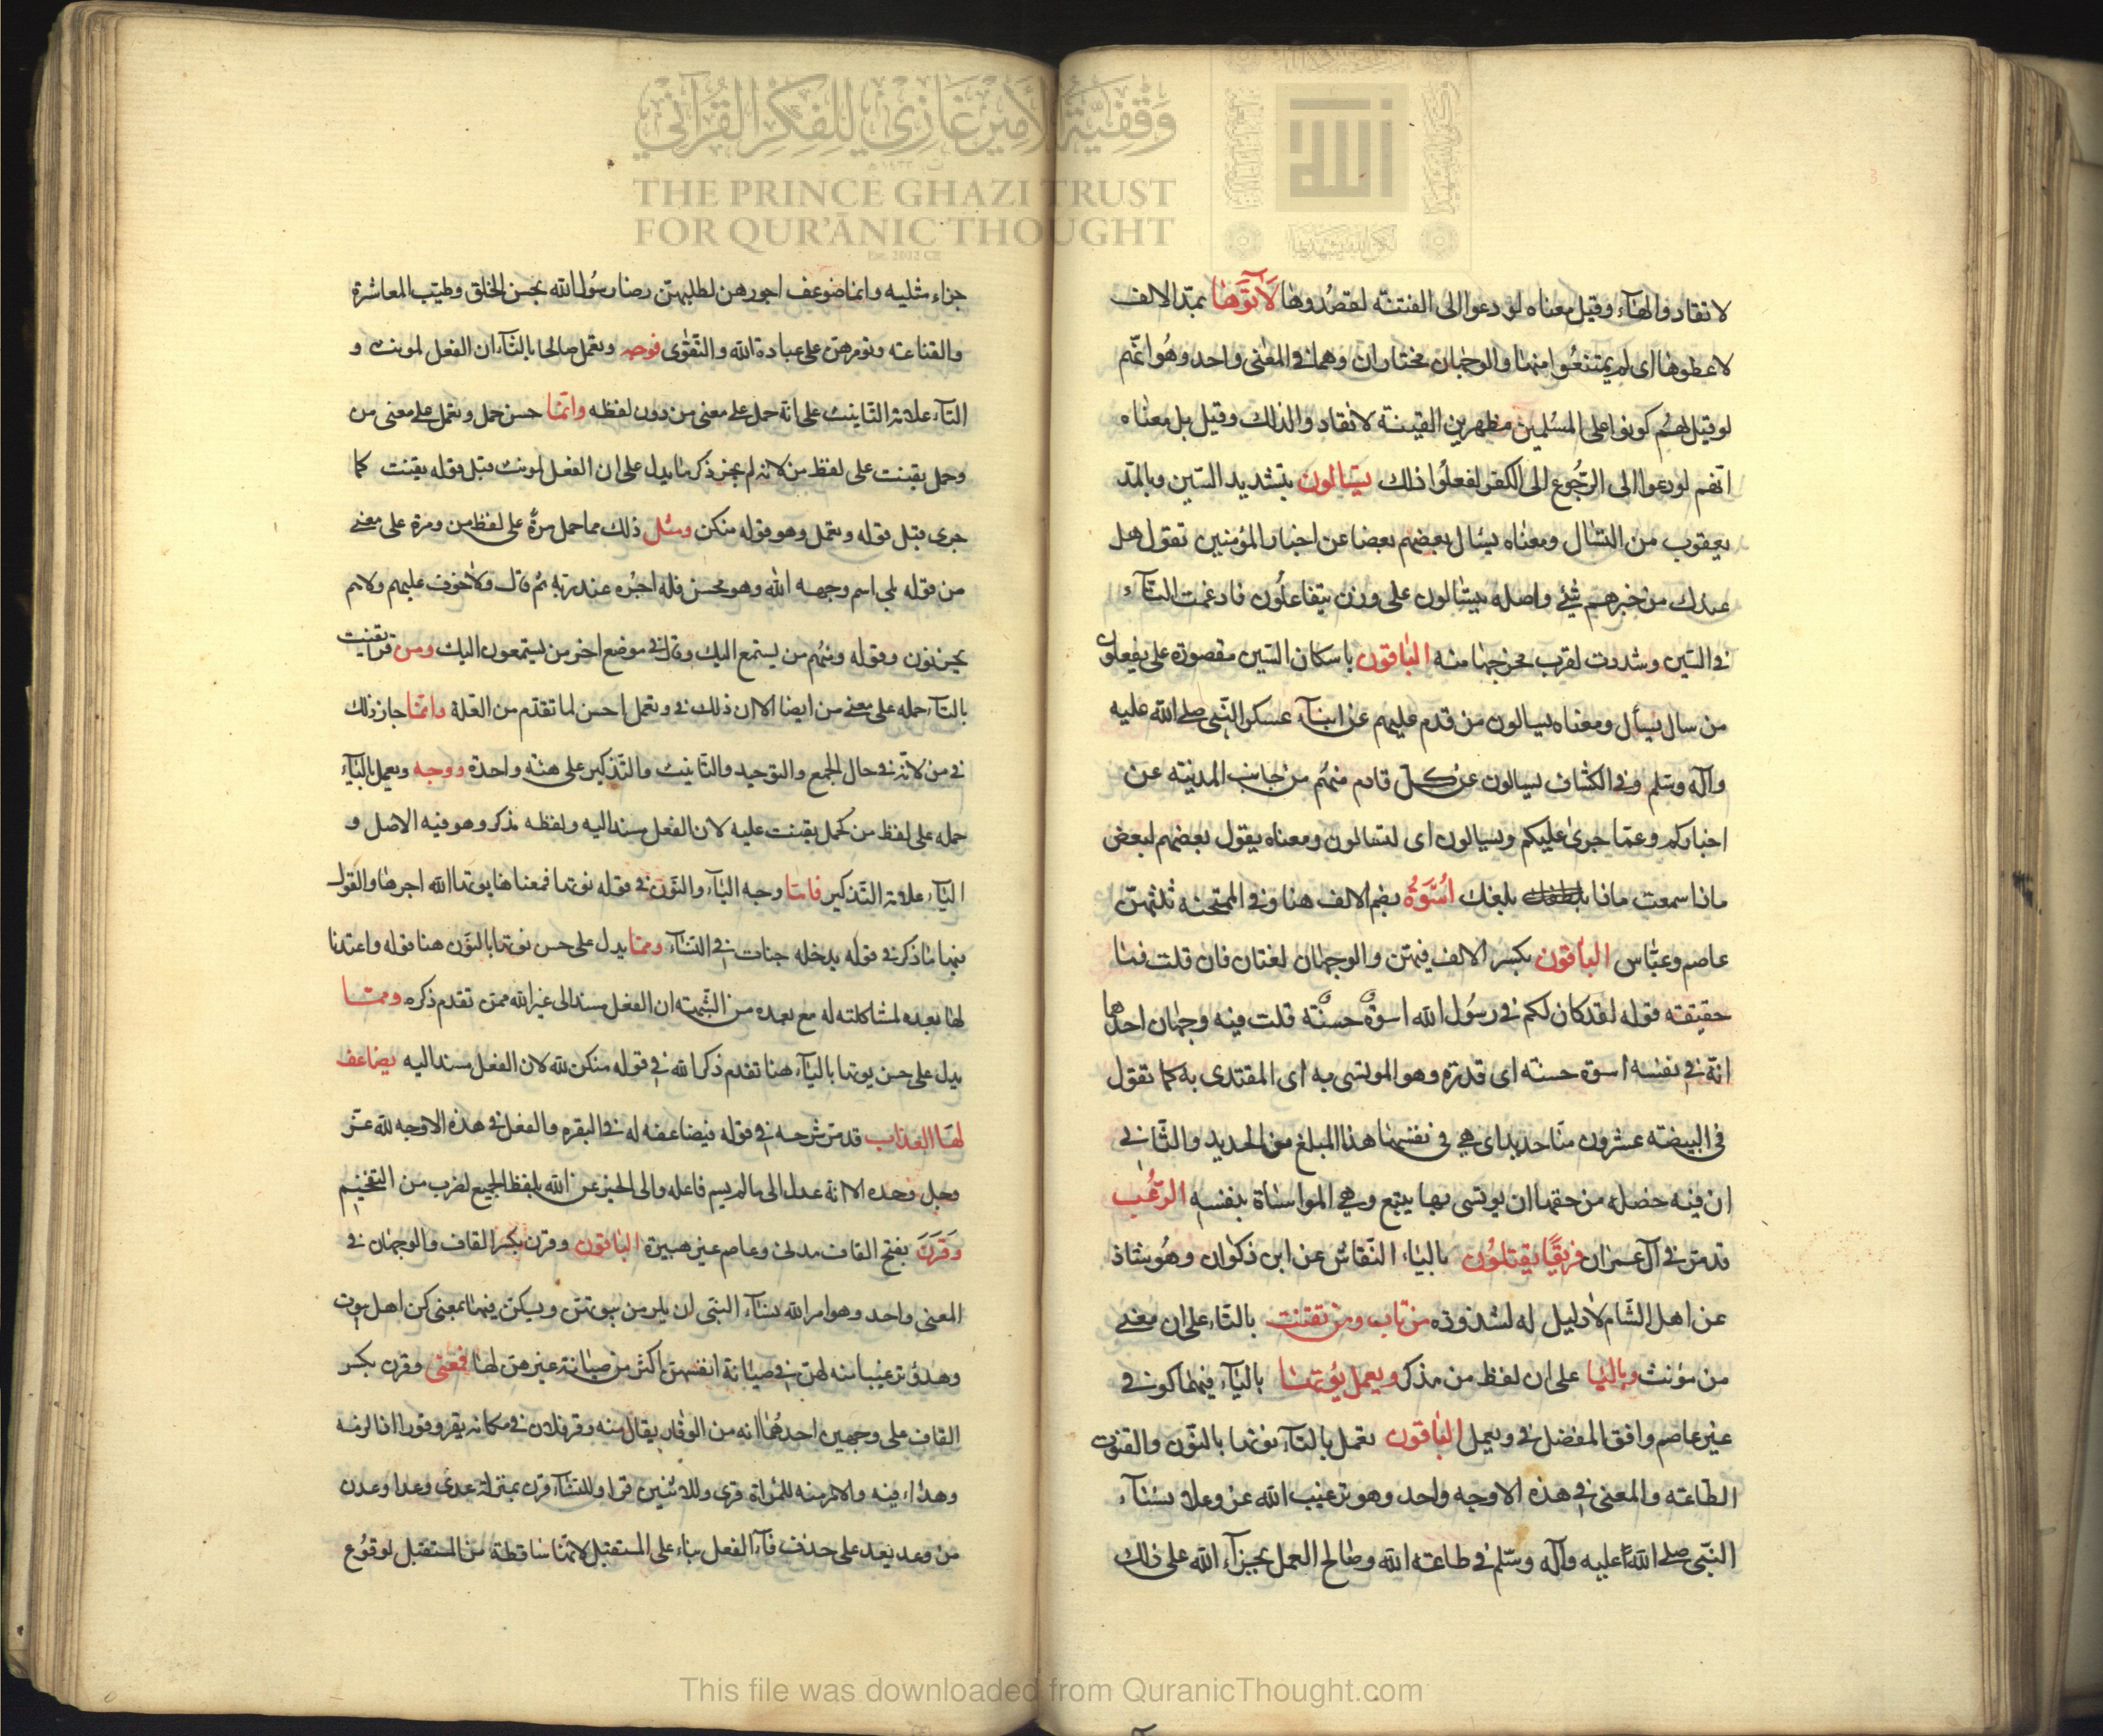 وقفية الأمير غازي للفكر القرآني
THE PRINCE GHAZI TRUST
FOR QUR'ĀNIC THOUGHT
Est. 2012 CE
لانقادوا لهاء وقيل معناه لو دعوا الى الفتنة لقصدوها لَآتَوْهَا بمد الالف
لاعطوها اى لم يمتنعوا منها والوجهان مختاران وهما في المعنى واحد وهو انهم
لو قيل لهم كونوا على المسلمين مظهرين الفتنة لانقادوا لذلك وقيل بل معناه
انهم لو دعوا الى الرجوع الى الكفر لفعلوا ذلك يسّالون بتشديد السين وبالمد
يعقوب من التسال ومعناه يسال بعضهم بعضا عن اخبار المؤمنين تقول هل
عندك من خبرهم شئ واصله يتسالون على وزن يتفاعلون فادغمت التاء
في السين وشددت لقرب مخرجها منه الباقون باسكان السين مقصورة على يفعلون
من سال يسأل ومعناه يسالون من قدم عليهم عن انباء عسكر النبي صلى الله عليه
وآله وسلم وفي الكشاف يسالون عن كل قادم منهم من جانب المدينة عن
اخباركم وعما جرى عليكم ويسالون اى يتسالون ومعناه يقول بعضهم لبعض
ماذا سمعت ماذا بلغك اُسْوَةٌ بضم الالف هنا وفي الممتحنه ثلثهن
عاصم وعباس الباقون بكسر الالف فيهن والوجهان لغتان فان قلت فما
حقيقة قوله لقد كان لكم في رسول الله اسوة حسنة قلت فيه وجهان احدها
انه في نفسه اسوة حسنه اى قدوة وهو الموتسى به اى المقتدى به كما تقول
في البيضة عشرون منا حديد اى هي في نفسها هذا المبلغ من الحديد والثاني
ان فيه خصله من حقها ان يوتسى بها يتبع وهي المواساة بنفسه الرعب
قد مر في آل عمران فريقا يقتلون بالياء النقاش عن ابن ذكوان وهو شاذ
عن اهل الشام لا دليل له لشذوذه من تاب ومن تقنت بالتاء على ان معنى
من مؤنث وباليا على ان لفظ من مذكر ويعمل يؤتها بالياء فيهما كوفى
غير عاصم وافق المفضل في ويعمل الباقون تعمل بالتاء نوتها بالنون والقنوت
الطاعة والمعنى في هذه الاوجه واحد وهو ترغيب الله عز وعلا نساء
النبي صلى الله عليه وآله وسلم في طاعة الله وصالح العمل بجزاء الله على ذلك
جزاء مثليه وانما ضوعف اجورهن لطلبهن رضا رسول الله بحسن الخلق وطيب المعاشرة
والقناعة وتوفرهن على عبادة الله والتقوى فوجه وتعمل صالحا بالتاء ان الفعل لمونث و
التاء علامة التانيث على انه حمل على معنى من دون لفظه وانما حسن حمل وتعمل على معنى من
وحمل يقنت على لفظ من لانه لم يجز ذكر ما يدل على ان الفعل لمونث قبل قوله يقنت كما
جرى قبل قوله وتعمل وهو قوله منكن ومثل ذلك مما حمل مرة على لفظ من ومرة على معنى
من قوله بلى من اسلم وجهه الله وهو محسن فله اجره عند ربه ثم قال ولا خوف عليهم ولا هم
يحزنون وقوله ومنهم من يستمع اليك وقال في موضع اخر من يستمعون اليك ومن قرا تقنت
بالتاء حمله على معنى من ايضا الا ان ذلك في وتعمل احسن لما تقدم من العلة وانما جاز ذلك
في من لانه في حال الجمع والتوحيد والتانيث والتذكير على هيئة واحدة ووجه ويعمل بالياء
حمله على لفظ من كحمل يقنت عليه لان الفعل مسند اليه ولفظه مذكر وهو فيه الاصل و
الياء علامة التذكير فاما وجه الياء والنون في قوله نوتها فمعناها يوتها الله اجرها والقول
فيها ما ذكر في قوله يدخله جنات في النساء ومما يدل على حسن نوتها بالنون هنا قوله واعتدنا
لها بعده لمشاكلته له مع بعده من الشبهة ان الفعل مسند الى غير الله ممن تقدم ذكره ومما
يدل على حسن يوتها بالياء هنا تقدم ذكر الله في قوله منكن لله لان الفعل مسند اليه يضاعف
لها العذاب قد مر شرحه في قوله فيضاعفه له في البقره والفعل في هذه الاوجه لله عز
وجل وحده الا انه عدل الى ما لم يسم فاعله والى الخبر عن الله بلفظ الجمع لضرب من التفخيم
وَقَرْنَ بفتح القاف مدني وعاصم غير هبيرة الباقون وقرن بكسر القاف والوجهان في
المعنى واحد وهو امر الله نساء النبي ان يلزمن بيوتهن ويسكن فيها بمعنى كن اهل بيوت
وهدؤ ترغيبا منه لهن في صيانة انفسهن اكثر من صيانة غيرهن لها فمعنى وقرن بكسر
القاف على وجهين احدهما انه من الوقار يقال منه وقر فلان في مكانه يقر وقورا اذا لزمه
وهدا فيه والامر منه للمراة قرى وللاثنين قرا وللنساء قرن بمنزلة عدى وعدا وعدن
من وعد يعد على حذف فاء الفعل بناء على المستقبل لانها ساقطة من المستقبل لوقوع
This file was downloaded from QuranicThought.com